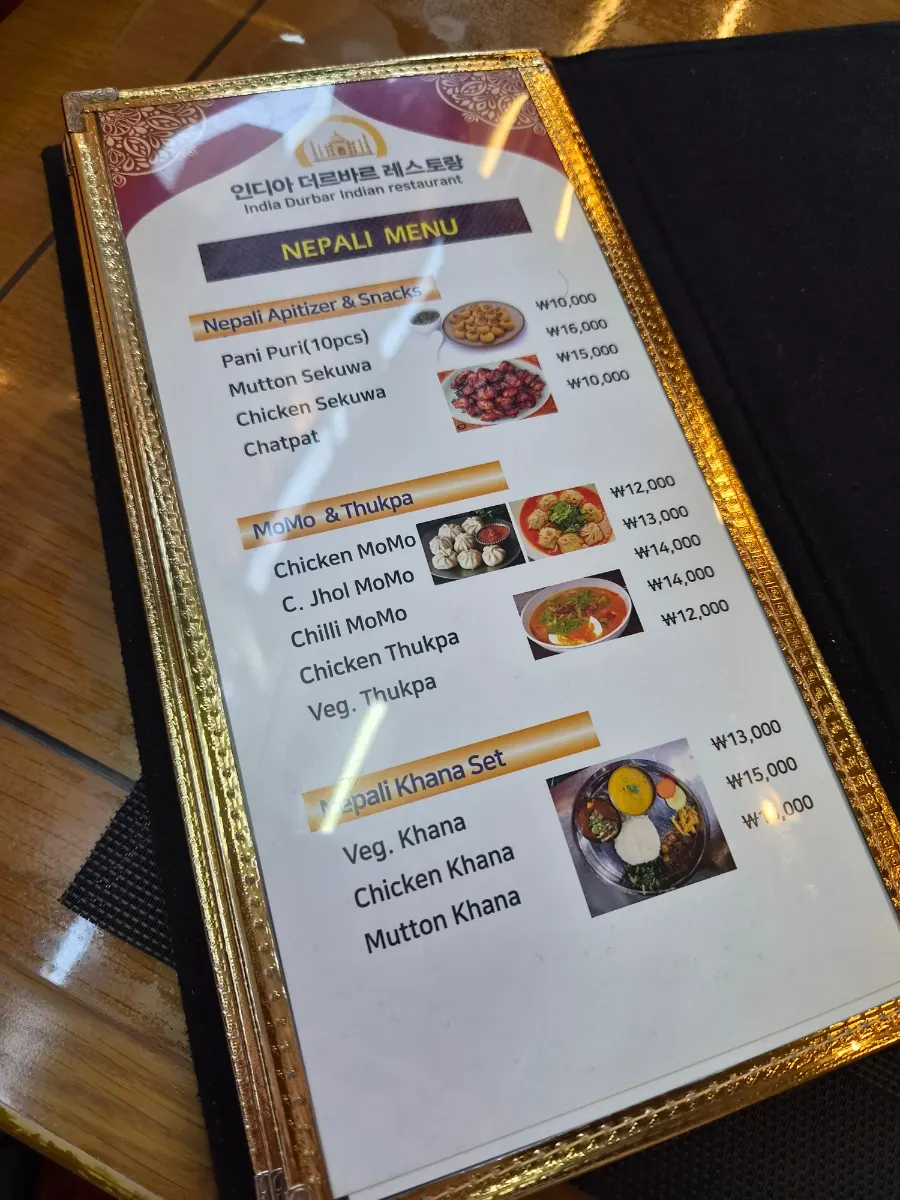 인디아 더르바르 레스토랑
India Durbar Indian restaurant
NEPALI MENU
Nepali Apitizer & Snacks
Pani Puri(10pcs) ₩10,000
Mutton Sekuwa ₩16,000
Chicken Sekuwa ₩15,000
Chatpat ₩10,000
MoMo & Thukpa
Chicken MoMo ₩12,000
C. Jhol MoMo ₩13,000
Chilli MoMo ₩14,000
Chicken Thukpa ₩14,000
Veg. Thukpa ₩12,000
Nepali Khana Set
Veg. Khana ₩13,000
Chicken Khana ₩15,000
Mutton Khana